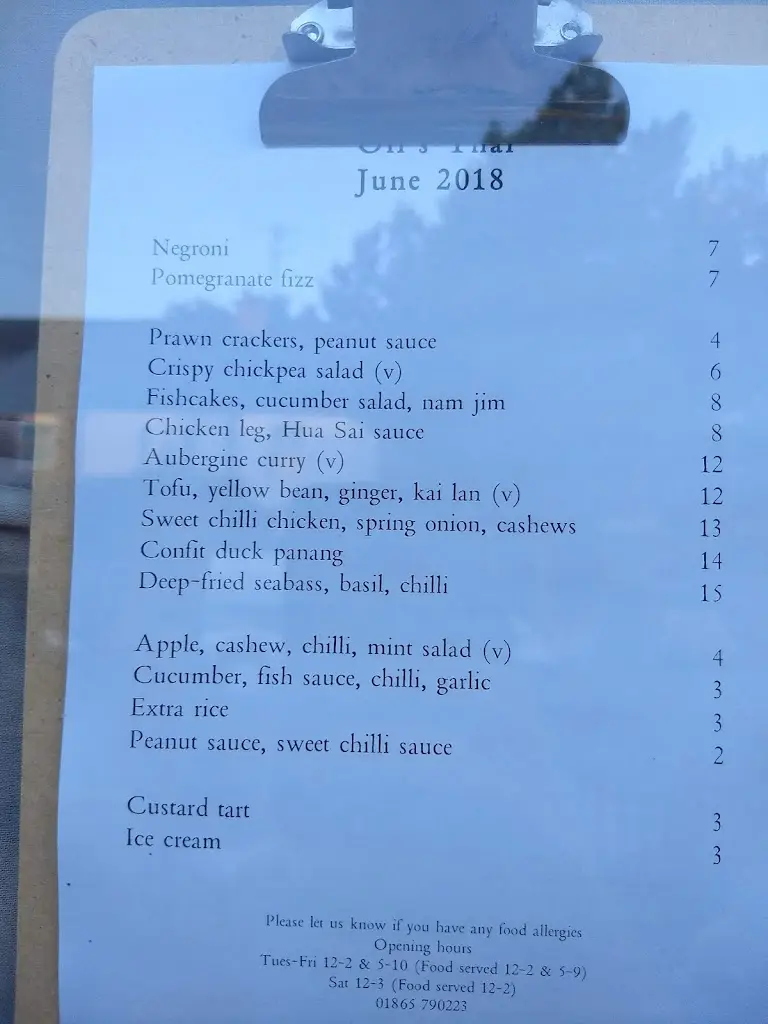 June 2018
Negroni 7
Pomegranate fizz 7
Prawn crackers, peanut sauce 4
Crispy chickpea salad (v) 6
Fishcakes, cucumber salad, nam jim 8
Chicken leg, Hua Sai sauce 8
Aubergine curry (v) 12
Tofu, yellow bean, ginger, kai lan (v) 12
Sweet chilli chicken, spring onion, cashews 13
Confit duck panang 14
Deep-fried seabass, basil, chilli 15
Apple, cashew, chilli, mint salad (v) 4
Cucumber, fish sauce, chilli, garlic 3
Extra rice 3
Peanut sauce, sweet chilli sauce 2
Custard tart 3
Ice cream 3
Please let us know if you have any food allergies
Opening hours
Tues-Fri 12-2 & 5-10 (Food served 12-2 & 5-9)
Sat 12-3 (Food served 12-2)
01865 790223